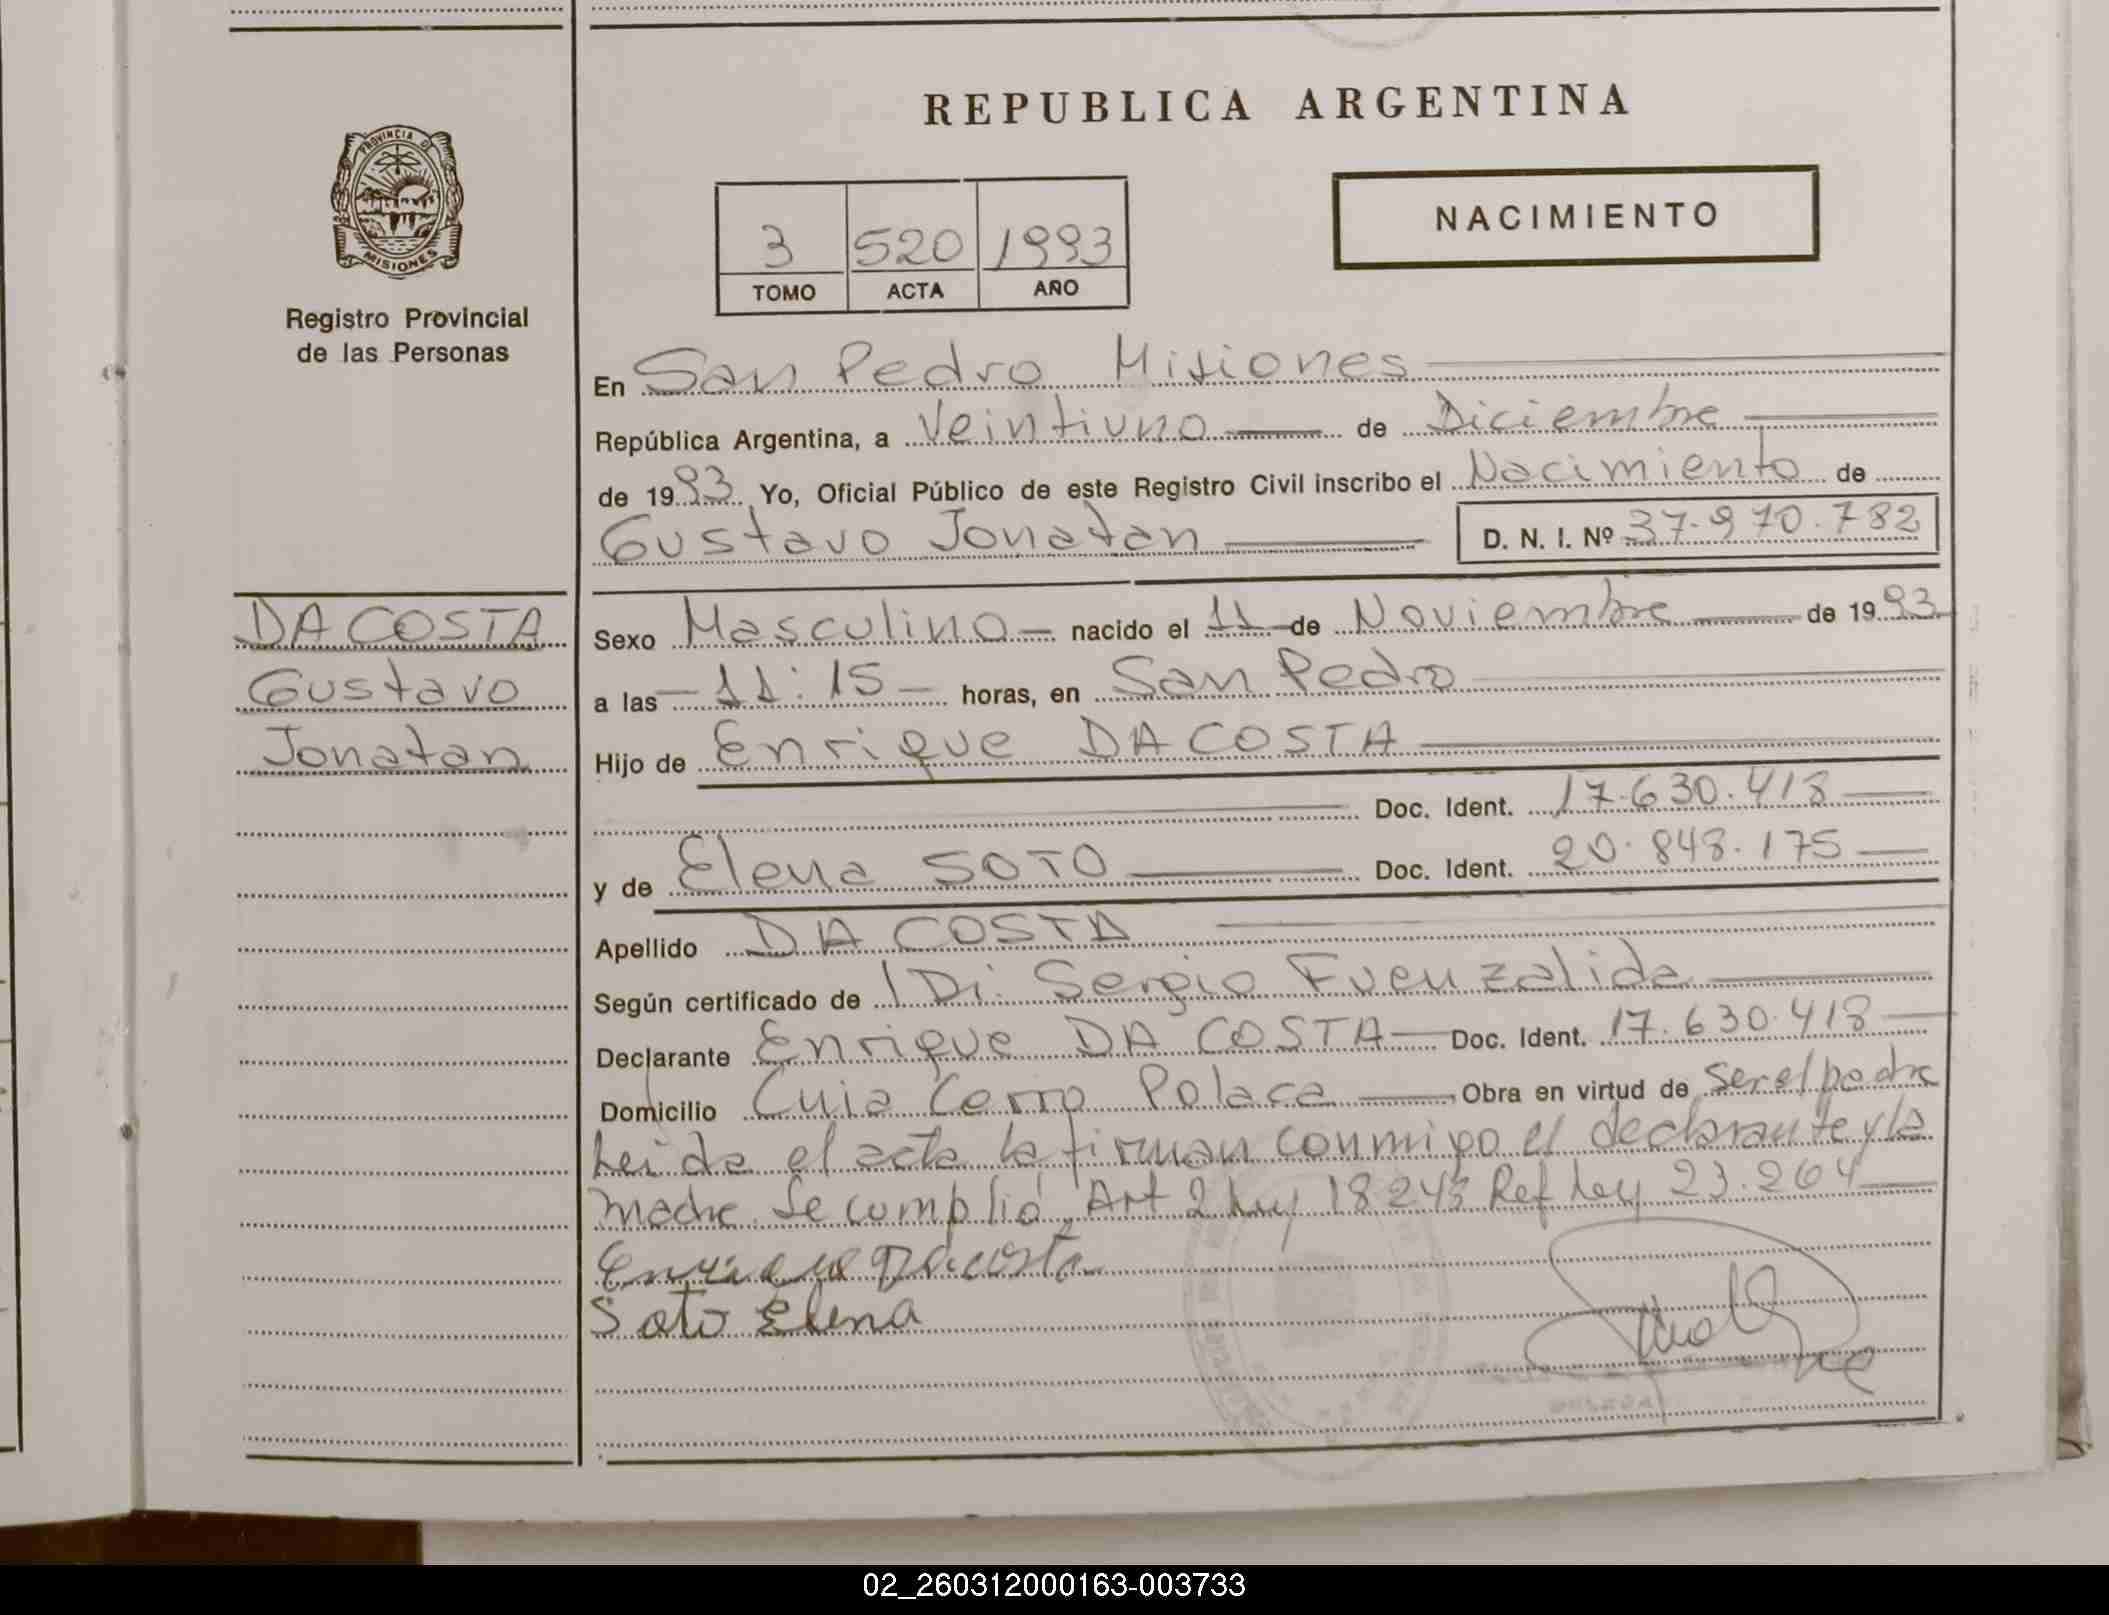 REPUBLICA ARGENTINA
NACIMIENTO
PROVINCIA DE
MISIONES
Registro Provincial
de las Personas
3 520 1993
TOMO ACTA AÑO
En San Pedro Misiones
República Argentina, a Veintiuno de Diciembre
de 1993 Yo, Oficial Público de este Registro Civil inscribo el Nacimiento de
Gustavo Jonatan D. N. I. Nº 37.970.782
DA COSTA
Gustavo
Jonatan
Sexo Masculino nacido el 11 de Noviembre de 1993
a las 11:15 horas, en San Pedro
Hijo de Enrique DA COSTA
Doc. Ident. 17.630.418
y de Elena SOTO Doc. Ident. 20.848.175
Apellido DA COSTA
Según certificado de Sergio Fuenzalida
Declarante Enrique DA COSTA Doc. Ident. 17.630.418
Domicilio Cerro Polaca Obra en virtud de ser el padre
Leida el acta la firman conmigo el declarante y la
madre. Se cumplió Art 2 Ley 18248 Ref Ley 23.264
Enrique Dacosta
Soto Elena
02_260312000163-003733